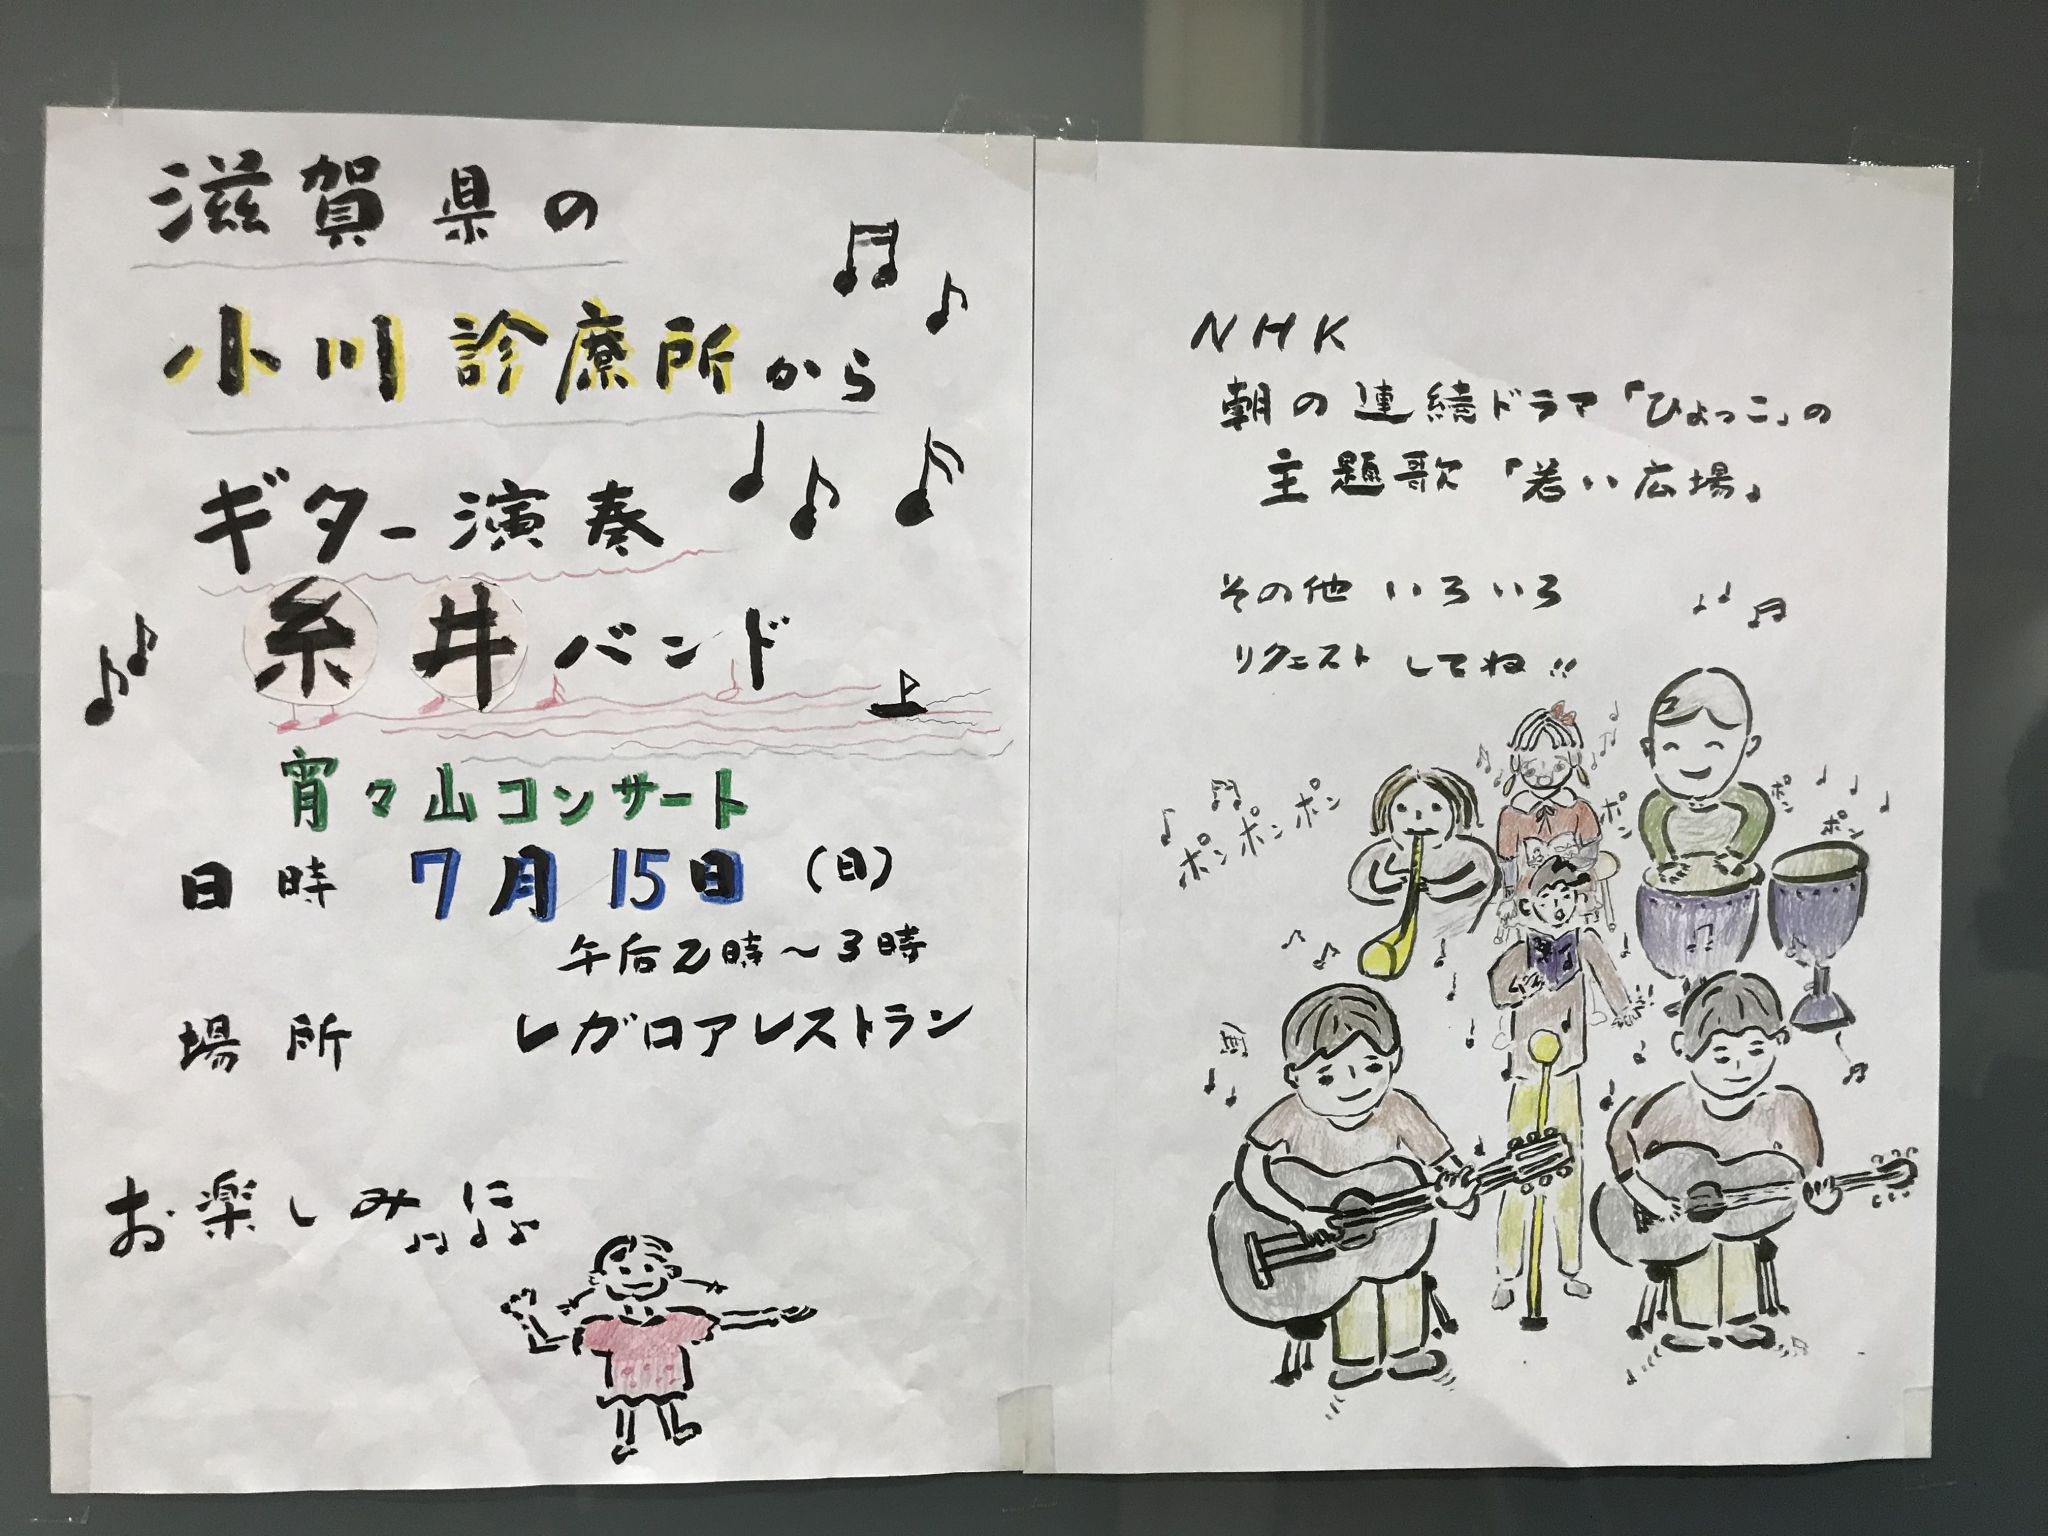 滋賀県の
小川診療所から
ギター演奏
糸井バンド
宵々山コンサート
日時 7月15日(日)
午后2時~3時
場所 レガロアレストラン
お楽しみに
NHK
朝の連続ドラマ「ひよっこ」の
主題歌「若い広場」
その他 いろいろ
リクエストしてね!!
ポンポンポン
ポン
ポン
ポン